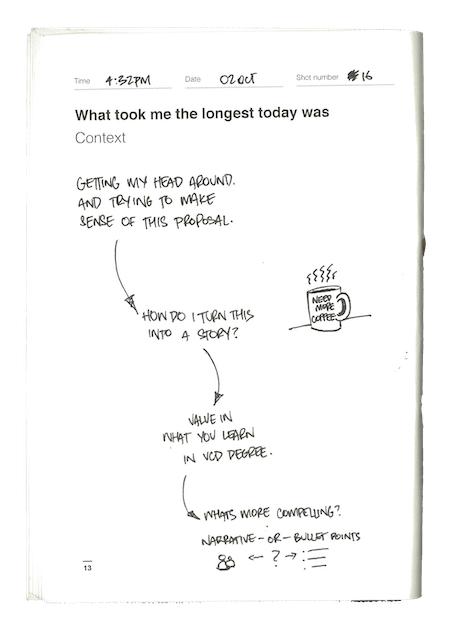 Time 4:32PM Date 02 OCT Shot number #16
What took me the longest today was
Context
GETTING MY HEAD AROUND.
AND TRYING TO MAKE
SENSE OF THIS PROPOSAL.
HOW DO I TURN THIS
INTO A STORY?
NEED
MORE
COFFEE
VALUE IN
WHAT YOU LEARN
IN VCD DEGREE.
WHATS MORE COMPELLING?
NARRATIVE - OR - BULLET POINTS
?
13